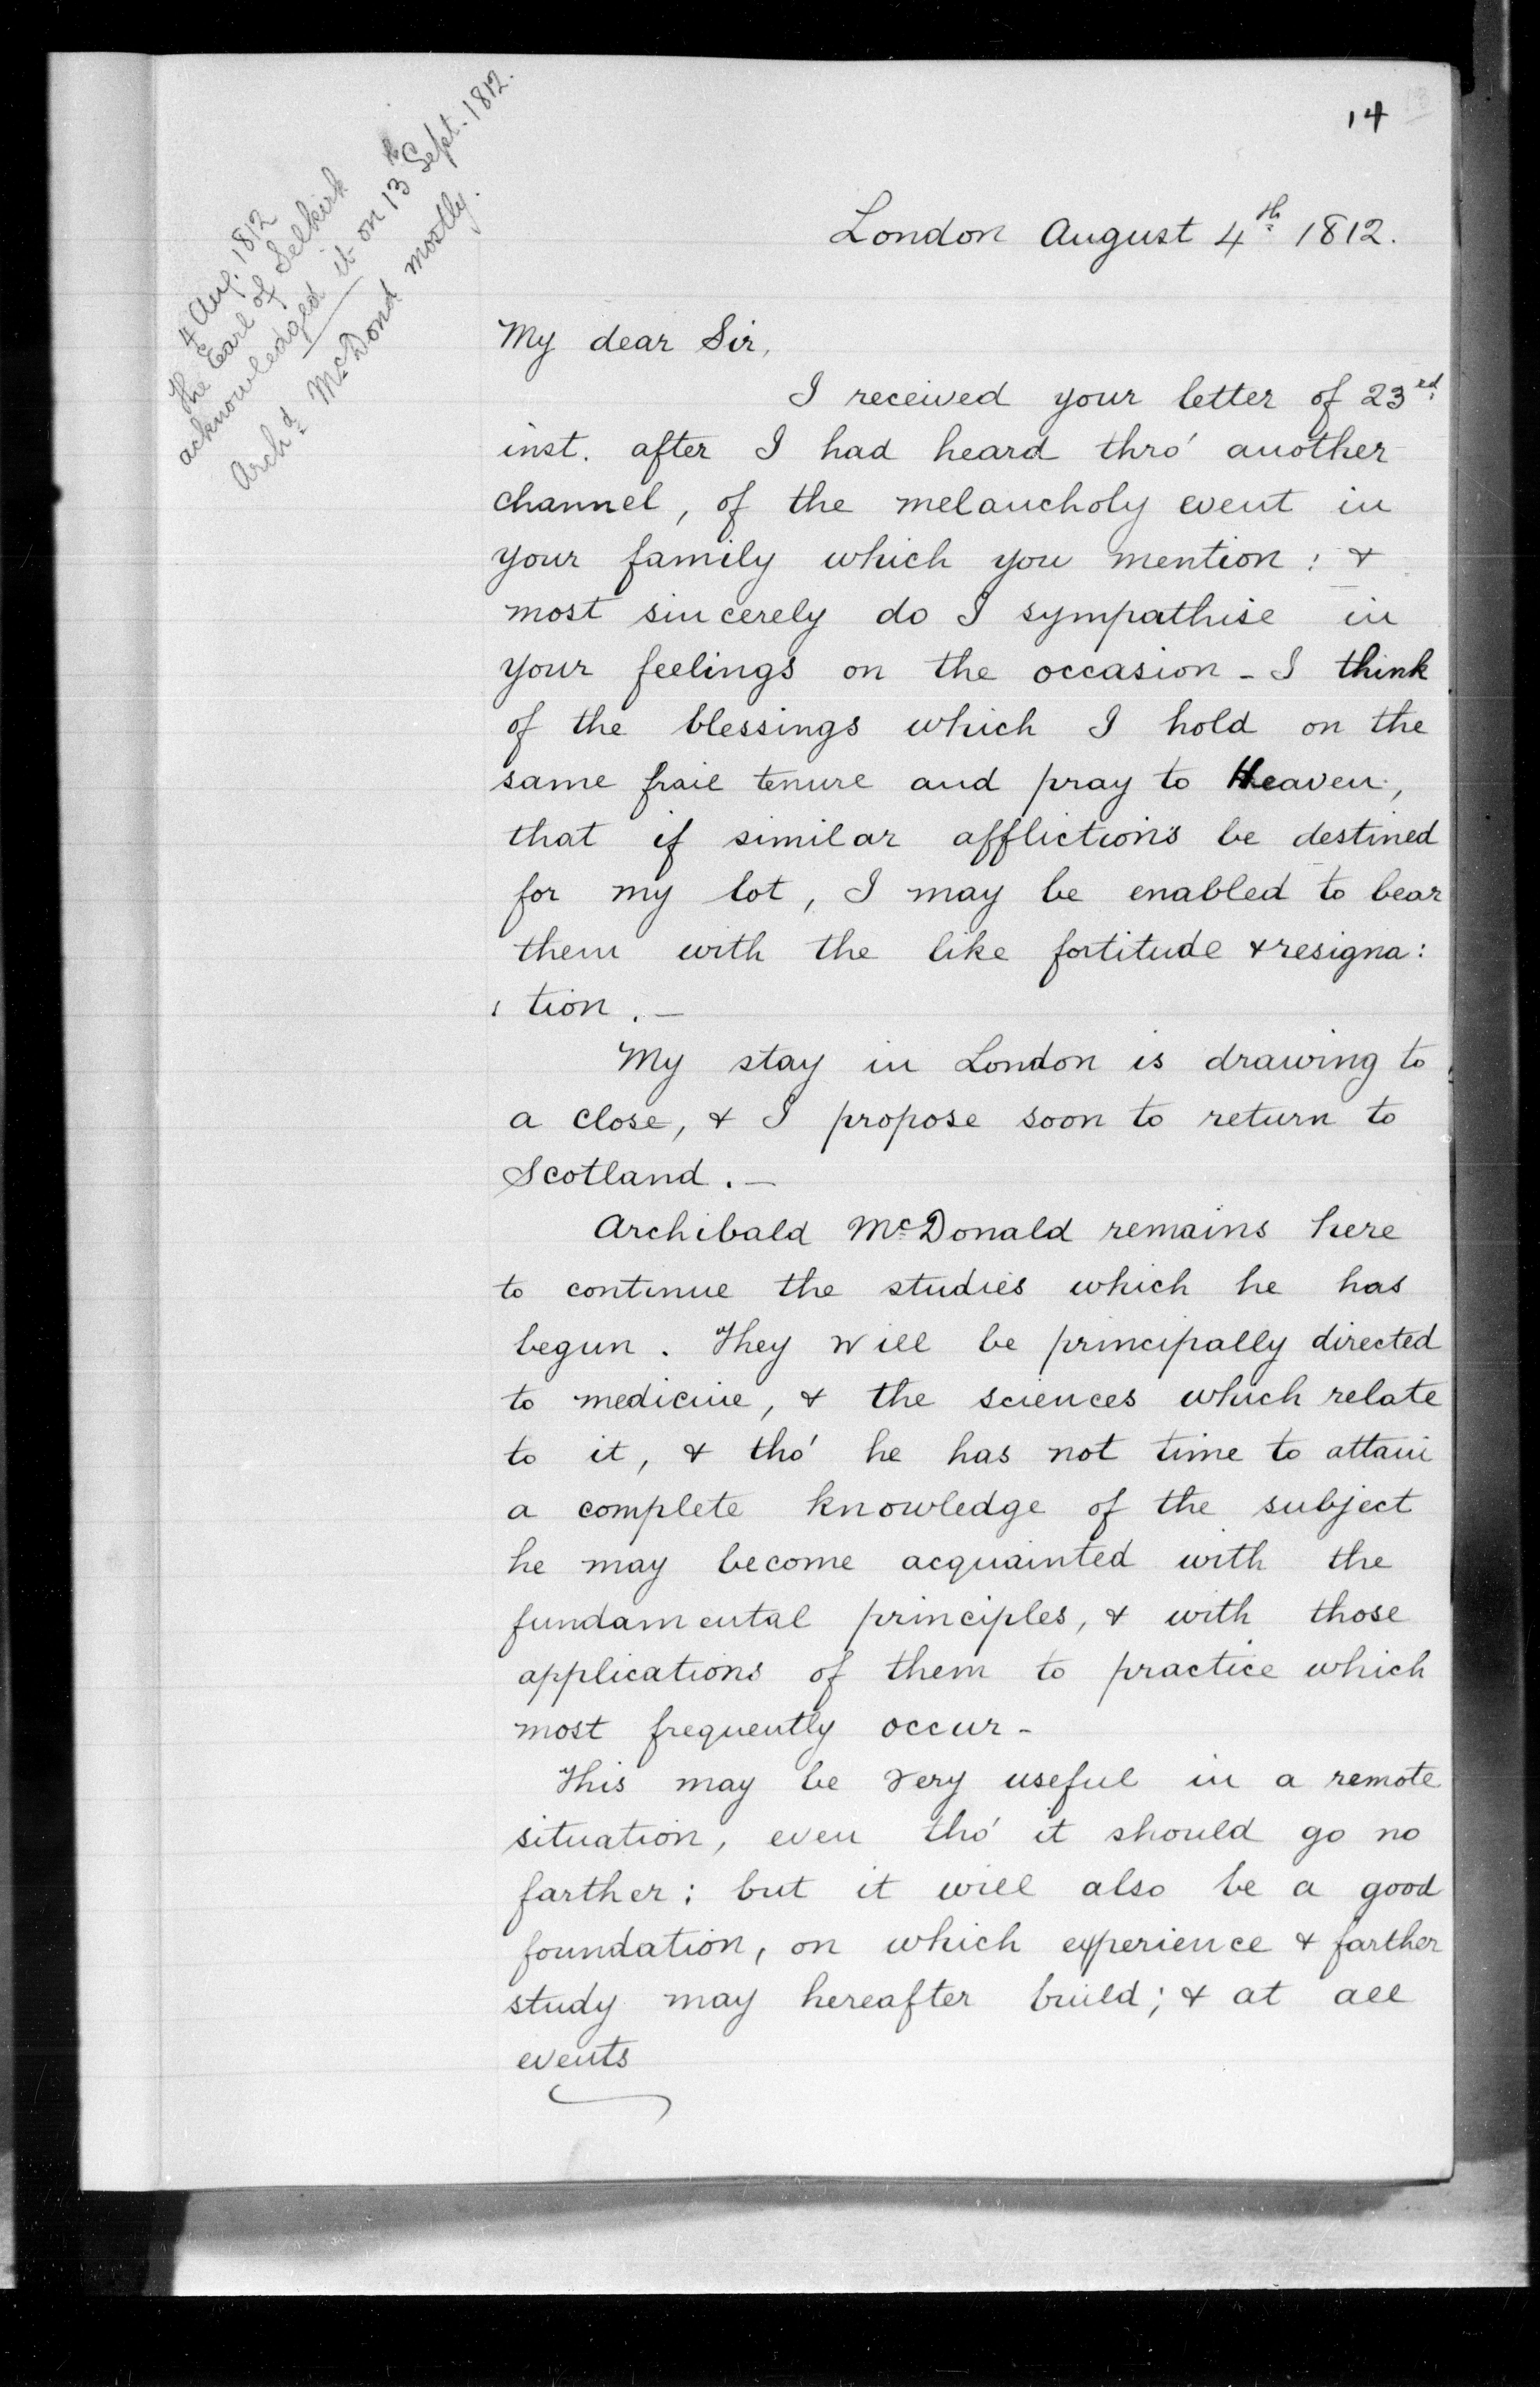 14
4 Aug. 1812
The Earl of Selkirk
acknowledged it on 13th Sept. 1812.
Archd McDond mostly.
London August 4th 1812.
My dear Sir,
I received your letter of 23rd
inst. after I had heard thro' another
channel, of the melancholy event in
your family which you mention : &
most sincerely do I sympathise in
your feelings on the occasion - I think
of the blessings which I hold on the
same frail tenure and pray to Heaven,
that if similar afflictions be destined
for my lot, I may be enabled to bear
them with the like fortitude & resigna:
: tion. —
My stay in London is drawing to
a close, & I propose soon to return to
Scotland. —
Archibald McDonald remains here
to continue the studies which he has
begun. They will be principally directed
to medicine, & the sciences which relate
to it, & tho' he has not time to attain
a complete knowledge of the subject
he may become acquainted with the
fundamental principles, & with those
applications of them to practice which
most frequently occur -
This may be very useful in a remote
situation, even tho' it should go no
farther: but it will also be a good
foundation, on which experience & farther
study may hereafter build; & at all
events